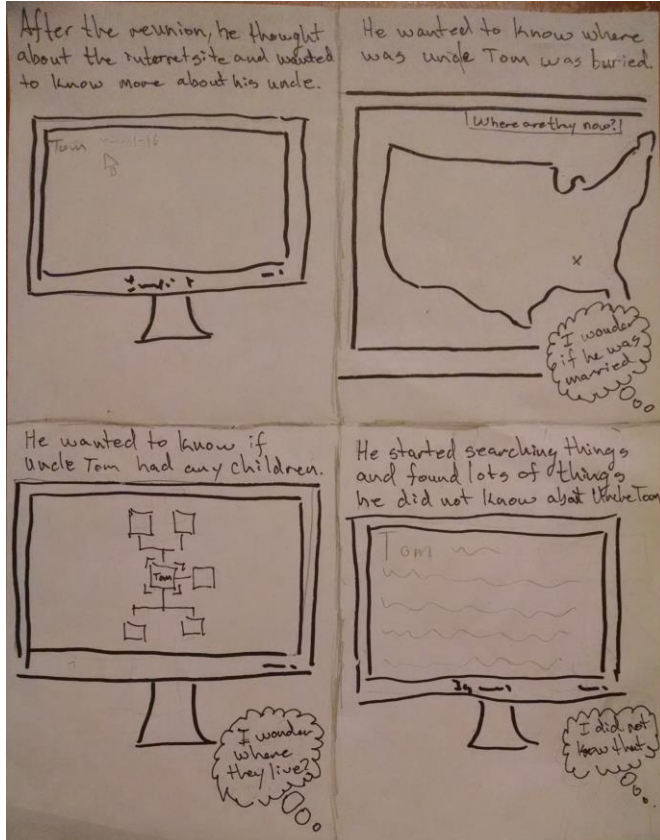 After the reunion, he thought
about the internet site and wanted
to know more about his uncle.
Tom
He wanted to know where
was uncle Tom was buried.
Where are thy now?
I wonder
if he was
married
He wanted to know if
uncle Tom had any children.
Tom
I wonder
where
they live?
He started searching things
and found lots of things
he did not know about Uncle Tom
Tom
I did not
know that